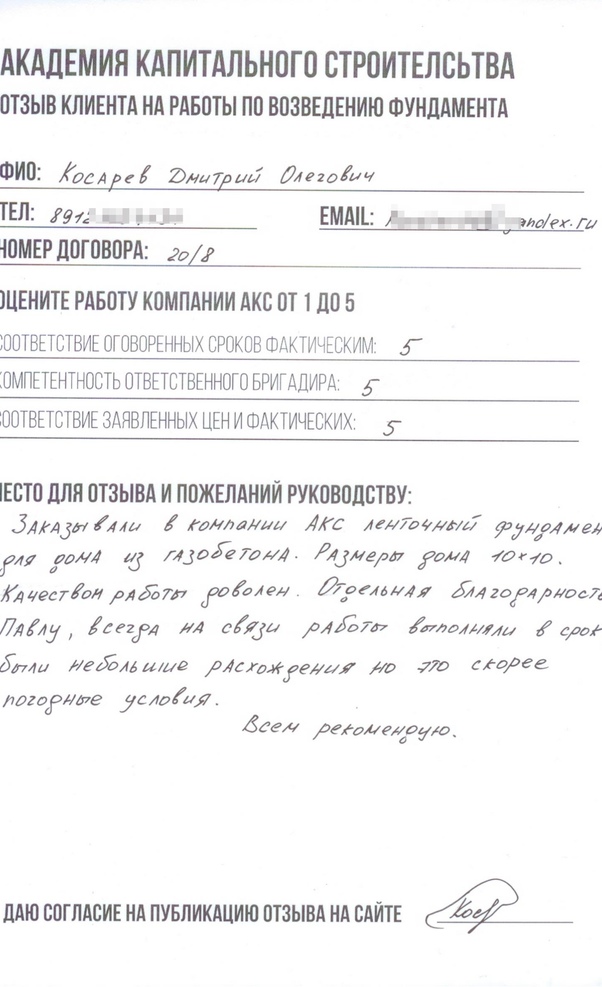 АКАДЕМИЯ КАПИТАЛЬНОГО СТРОИТЕЛСЬТВА
ОТЗЫВ КЛИЕНТА НА РАБОТЫ ПО ВОЗВЕДЕНИЮ ФУНДАМЕНТА
ФИО: Косарев Дмитрий Олегович
ТЕЛ: 8912 EMAIL: yandex.ru
НОМЕР ДОГОВОРА: 20/8
ОЦЕНИТЕ РАБОТУ КОМПАНИИ АКС ОТ 1 ДО 5
СООТВЕТСТВИЕ ОГОВОРЕННЫХ СРОКОВ ФАКТИЧЕСКИМ: 5
КОМПЕТЕНТНОСТЬ ОТВЕТСТВЕННОГО БРИГАДИРА: 5
СООТВЕТСТВИЕ ЗАЯВЛЕННЫХ ЦЕН И ФАКТИЧЕСКИХ: 5
ЕСТО ДЛЯ ОТЗЫВА И ПОЖЕЛАНИЙ РУКОВОДСТВУ:
Заказывали в компании АКС ленточный фундамен
для дома из газобетона. Размеры дома 10×10.
Качеством работы доволен. Отдельная благодарность
Павлу, всегда на связи работы выполняли в срок
были небольшие расхождения но это скорее
погодные условия.
Всем рекомендую.
ДАЮ СОГЛАСИЕ НА ПУБЛИКАЦИЮ ОТЗЫВА НА САЙТЕ